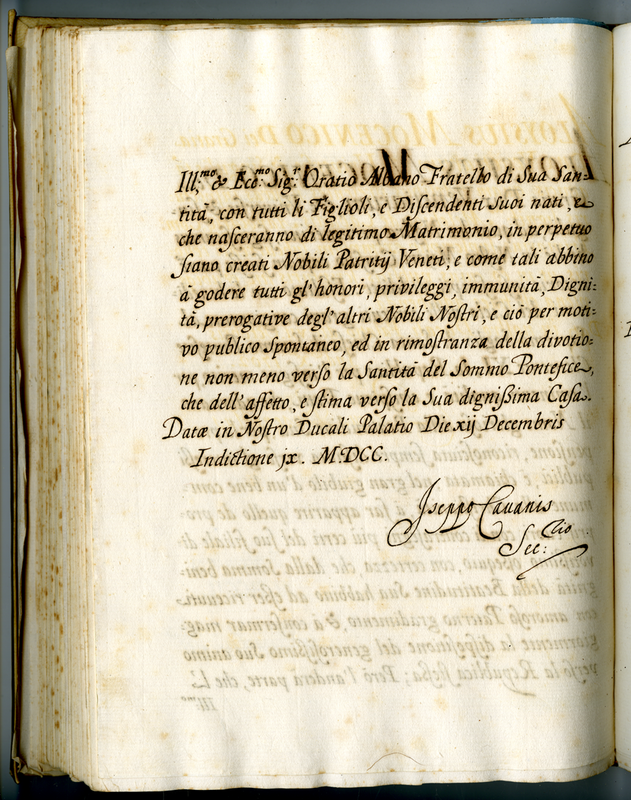 Ill:mo & Ecc:mo Sig:r Oratio Albano Fratello di Sua San=
tità, con tutti li Figlioli, e Discendenti suoi nati, e
che nasceranno di legitimo Matrimonio, in perpetuo
siano creati Nobili Patritij Veneti, e come tali abbino
à godere tutti gl'honori, privileggi, immunità, Digni=
tà, prerogative degl'altri Nobili Nostri, e ciò per moti=
vo publico spontaneo, ed in rimostranza della divotio=
ne non meno verso la Santità del Sommo Pontefice,
che dell'affetto, e stima verso la Sua dignissima Casa.
Datæ in Nostro Ducali Palatio Die xij Decembris
Indictione jx. M.DCC.
Iseppo Cavanis
Sec:rio